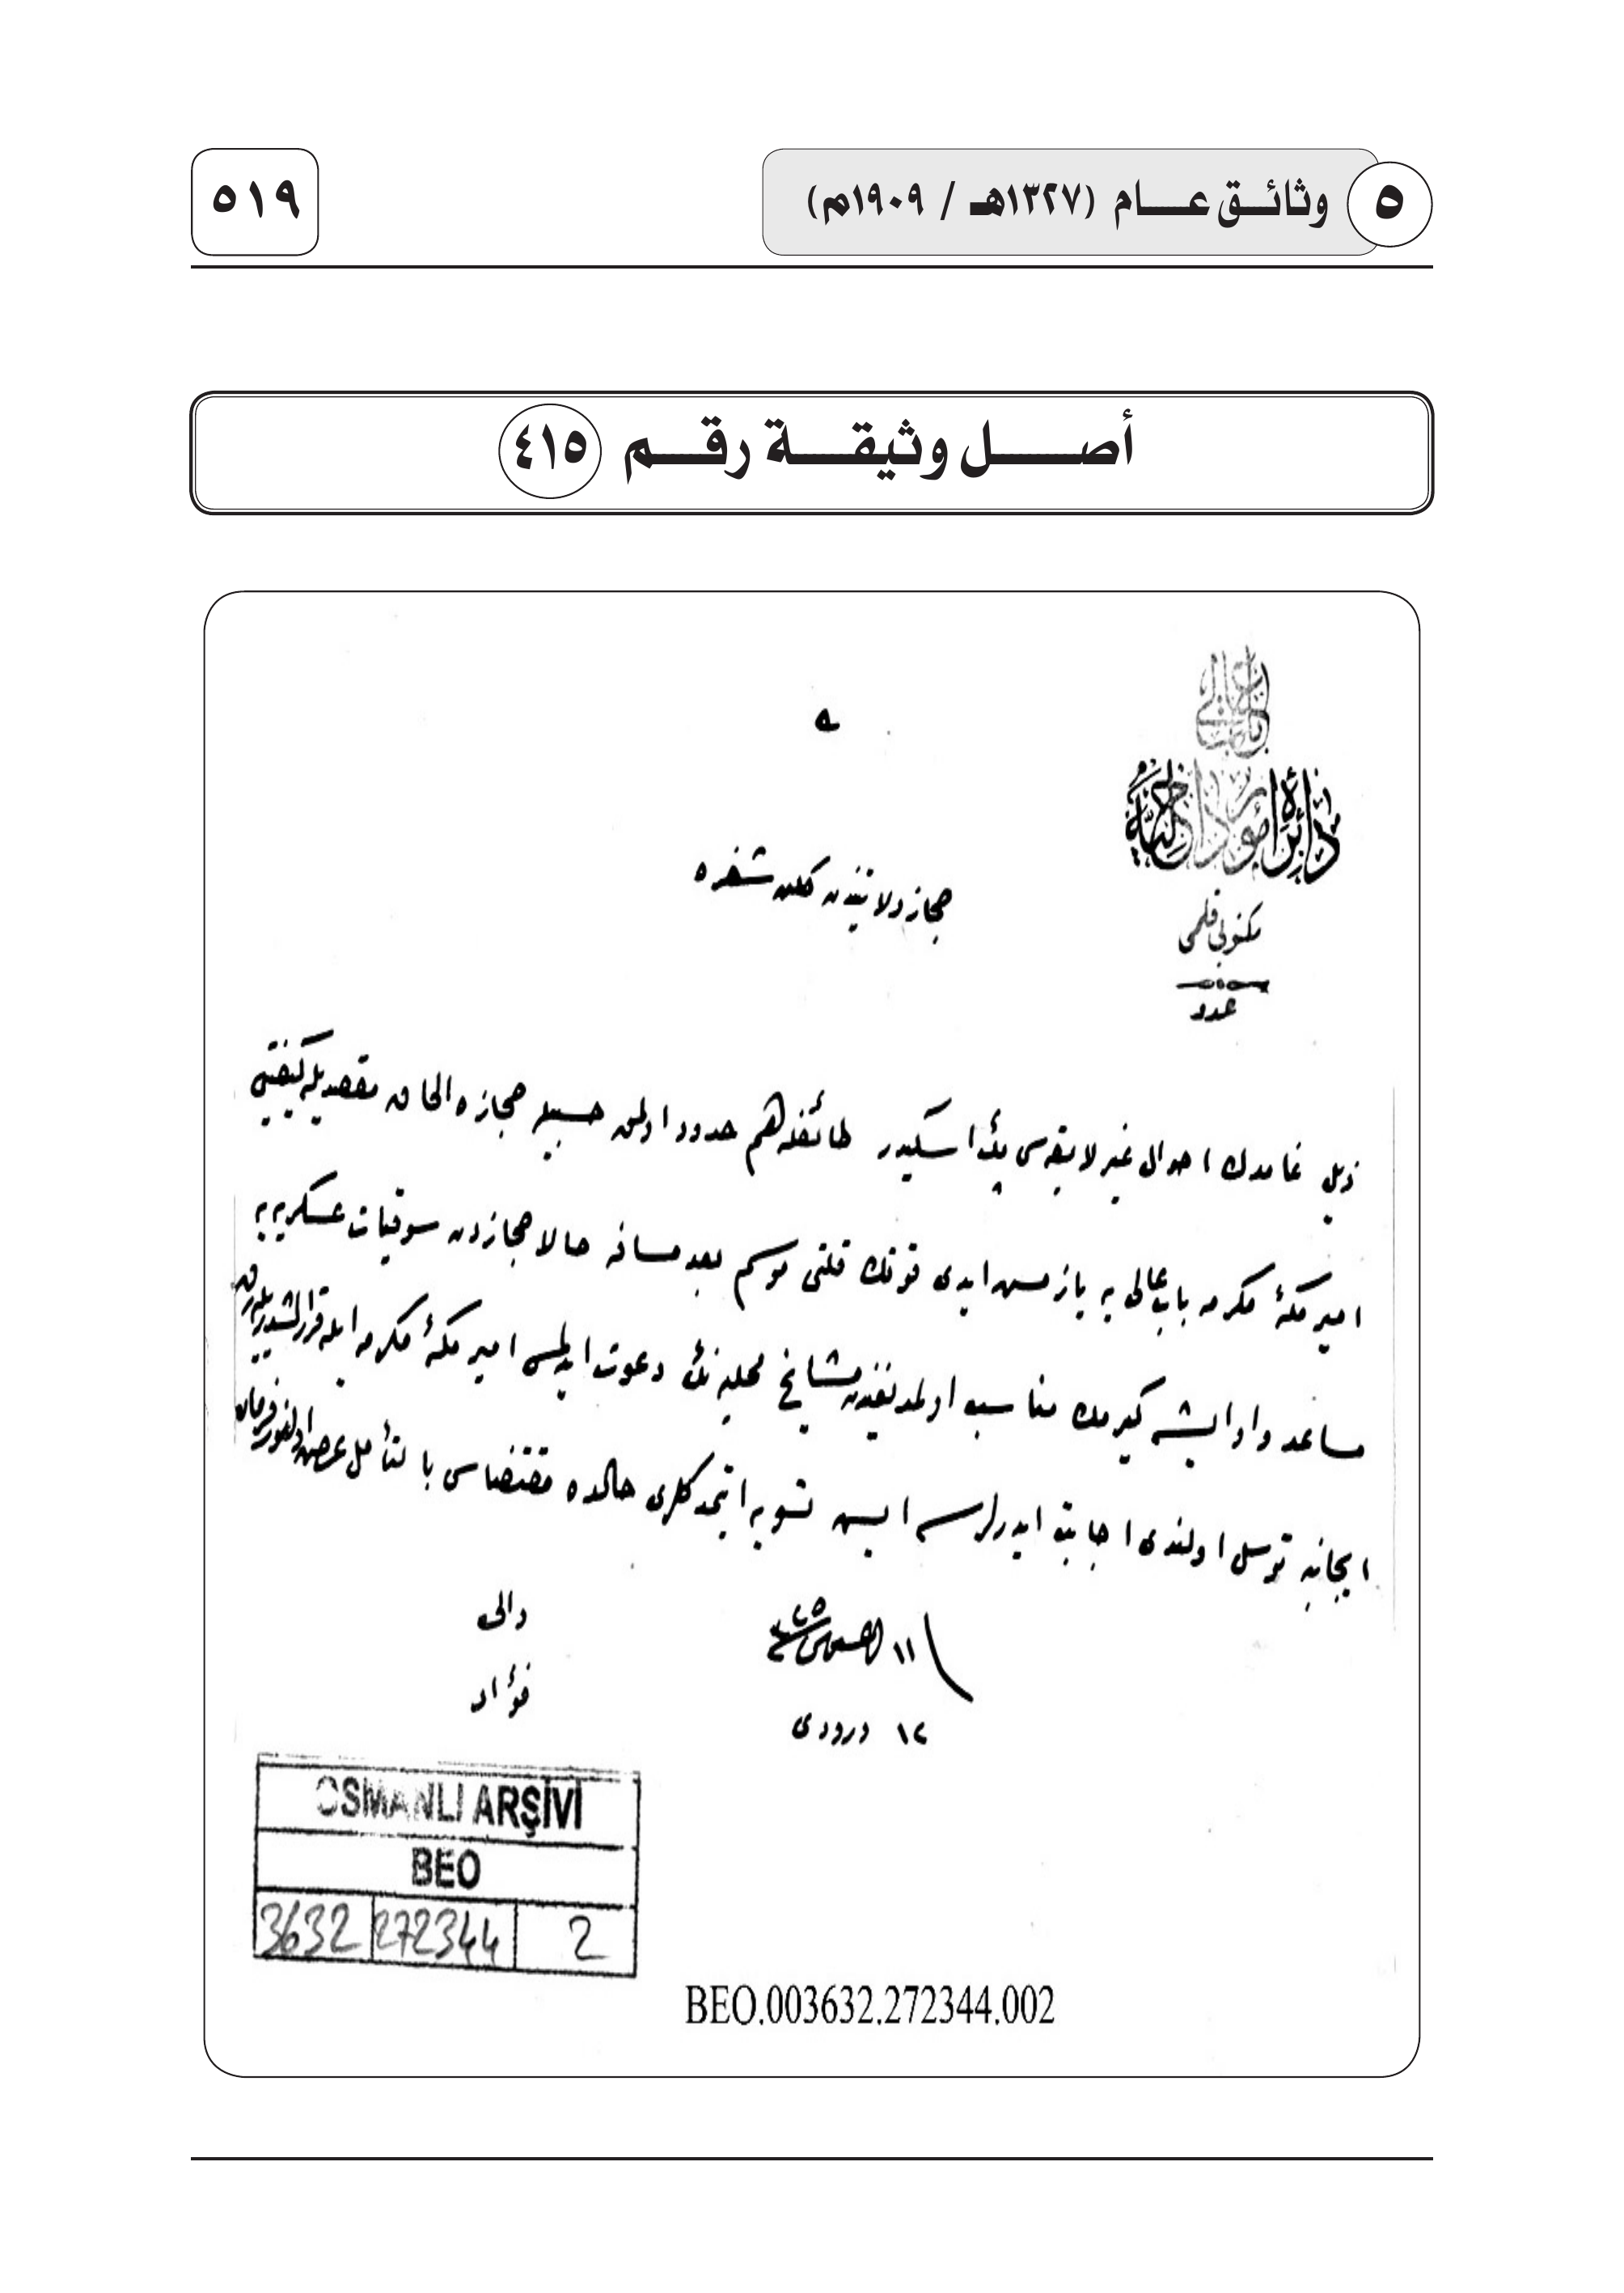 ٥ وثائق عام (١٣٢٧هـ / ١٩٠٩م)
٥١٩
أصل وثيقة رقم ٤١٥
باب عالی
دائرهٔ امور داخلیه
مکتوبی قلمی
عدد
حجاز ولایتندن کلن شفره
غامدك احوال غیر لایقه‌سی طائفله هم حدود اولمق حسبیله حجازه الحاق مقصدیله کیفیتی
امیر مکهٔ مکرمه باب عالی یه یازمس ایدی قوتك قلتی موسم بعد مسافه حالا حجازدن سوقیات عسکریه یه
مساعد و ایشه کیرمك مناسب اولمدیغندن مشایخ محلیه نك دعوت ایدلمسی امیر مکهٔ مکرمه ایله قرارلشدیریله‌رق
ایجابنه توسل اولندی اجابت ایدرلرسه ایش تسویه ایتمدکلری حالده مقتضاسی بالتأمل عرض اولنور فرمان
١١
١٢ ورودی
والی
فؤاد
OSMANLI ARŞİVİ
BEO
3632 272344 2
BEO.003632.272344.002